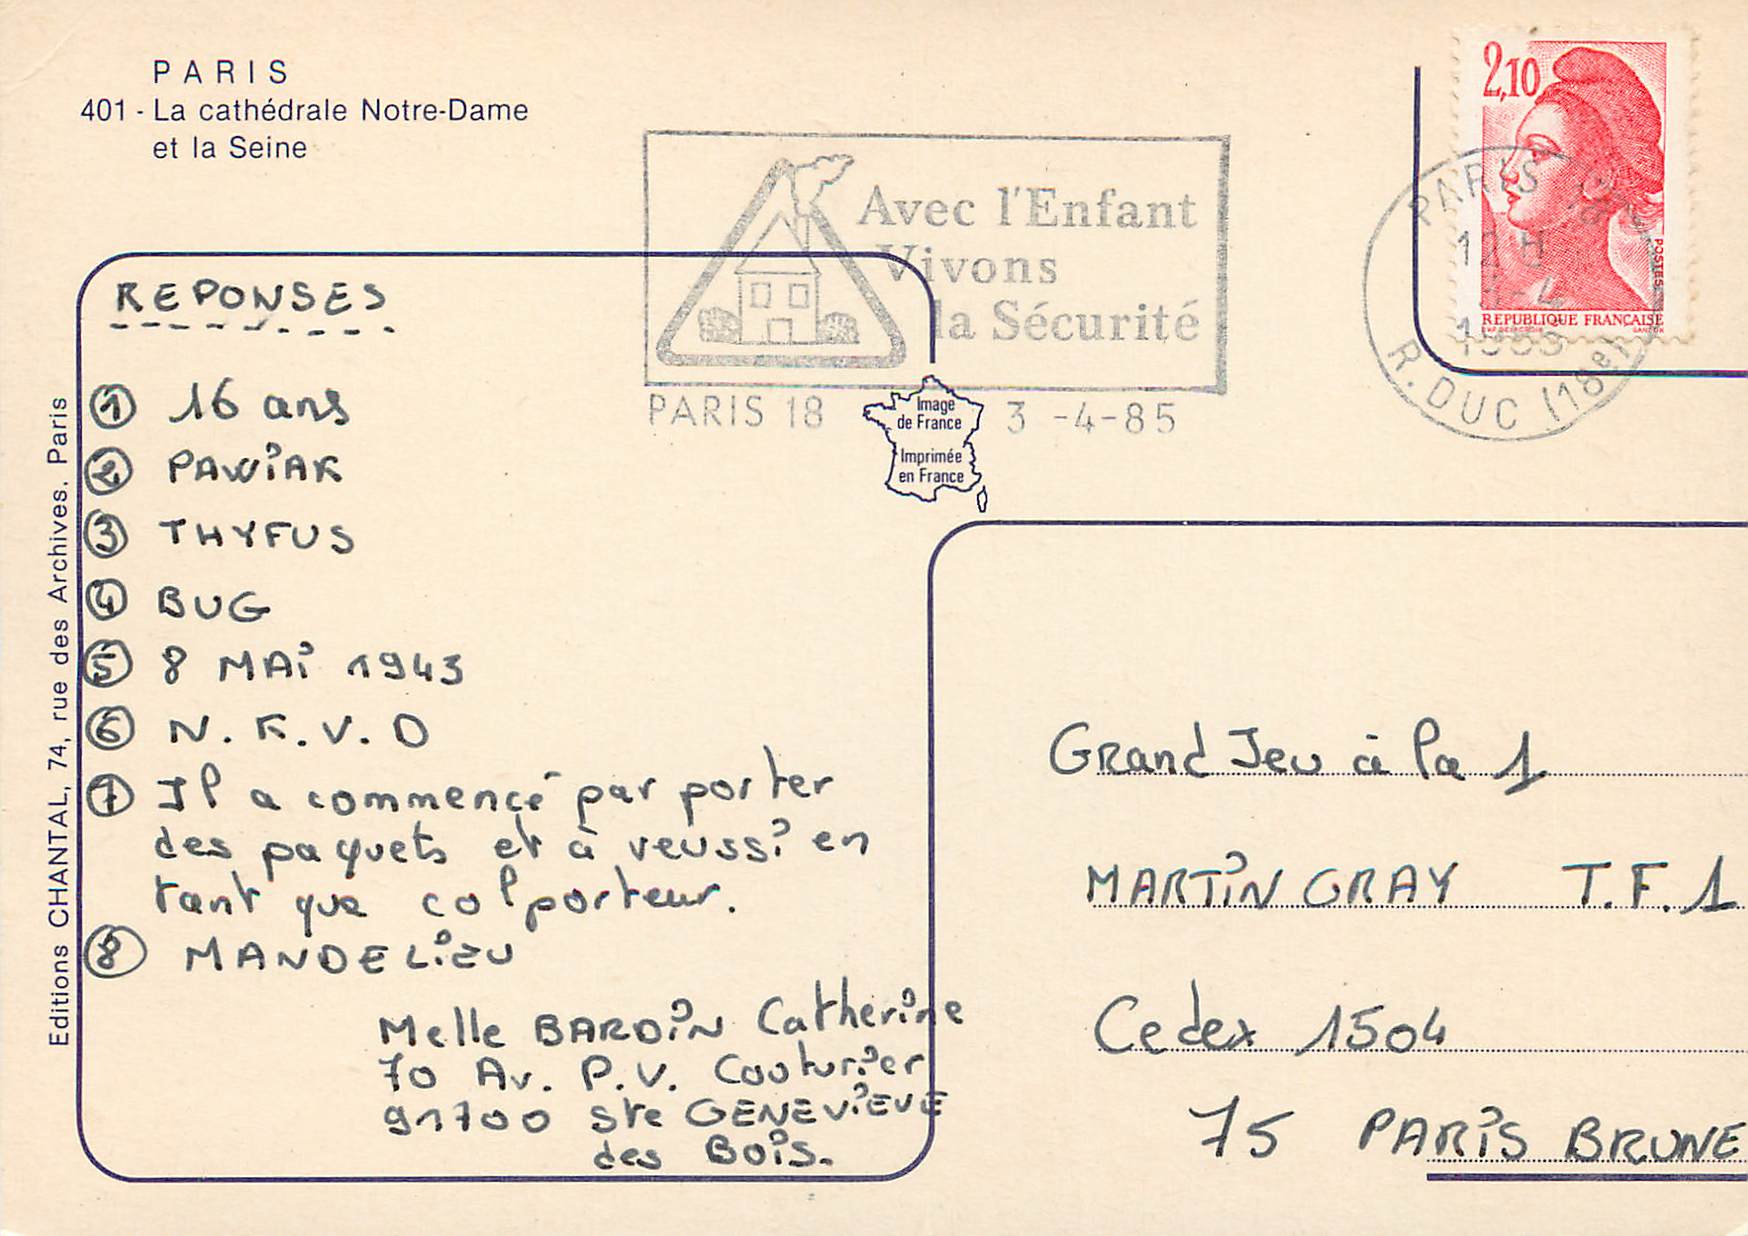 PARIS
401 - La cathédrale Notre-Dame
et la Seine
Avec l'Enfant
Vivons
la Sécurité
PARIS 18
3 -4-85
2,10
POSTES
REPUBLIQUE FRANÇAISE
PARIS 18
12 H
3-4
1985
R. DUC (18e)
Image
de France
Imprimée
en France
Editions CHANTAL, 74, rue des Archives, Paris
REPONSES
1 16 ans
2 PAWIAK
3 THYFUS
4 BUG
5 8 MAi 1943
6 N. K. V. D
7 Il a commencé par porter
des paquets et à reussi en
tant que colporteur.
8 MANDELIEU
Melle BARDIN Catherine
70 Av. P.V. Couturier
91700 Ste GENEVIEVE
des BOIS.
Grand Jeu à la 1
MARTIN GRAY T.F.1
Cedex 1504
75 PARIS BRUNE